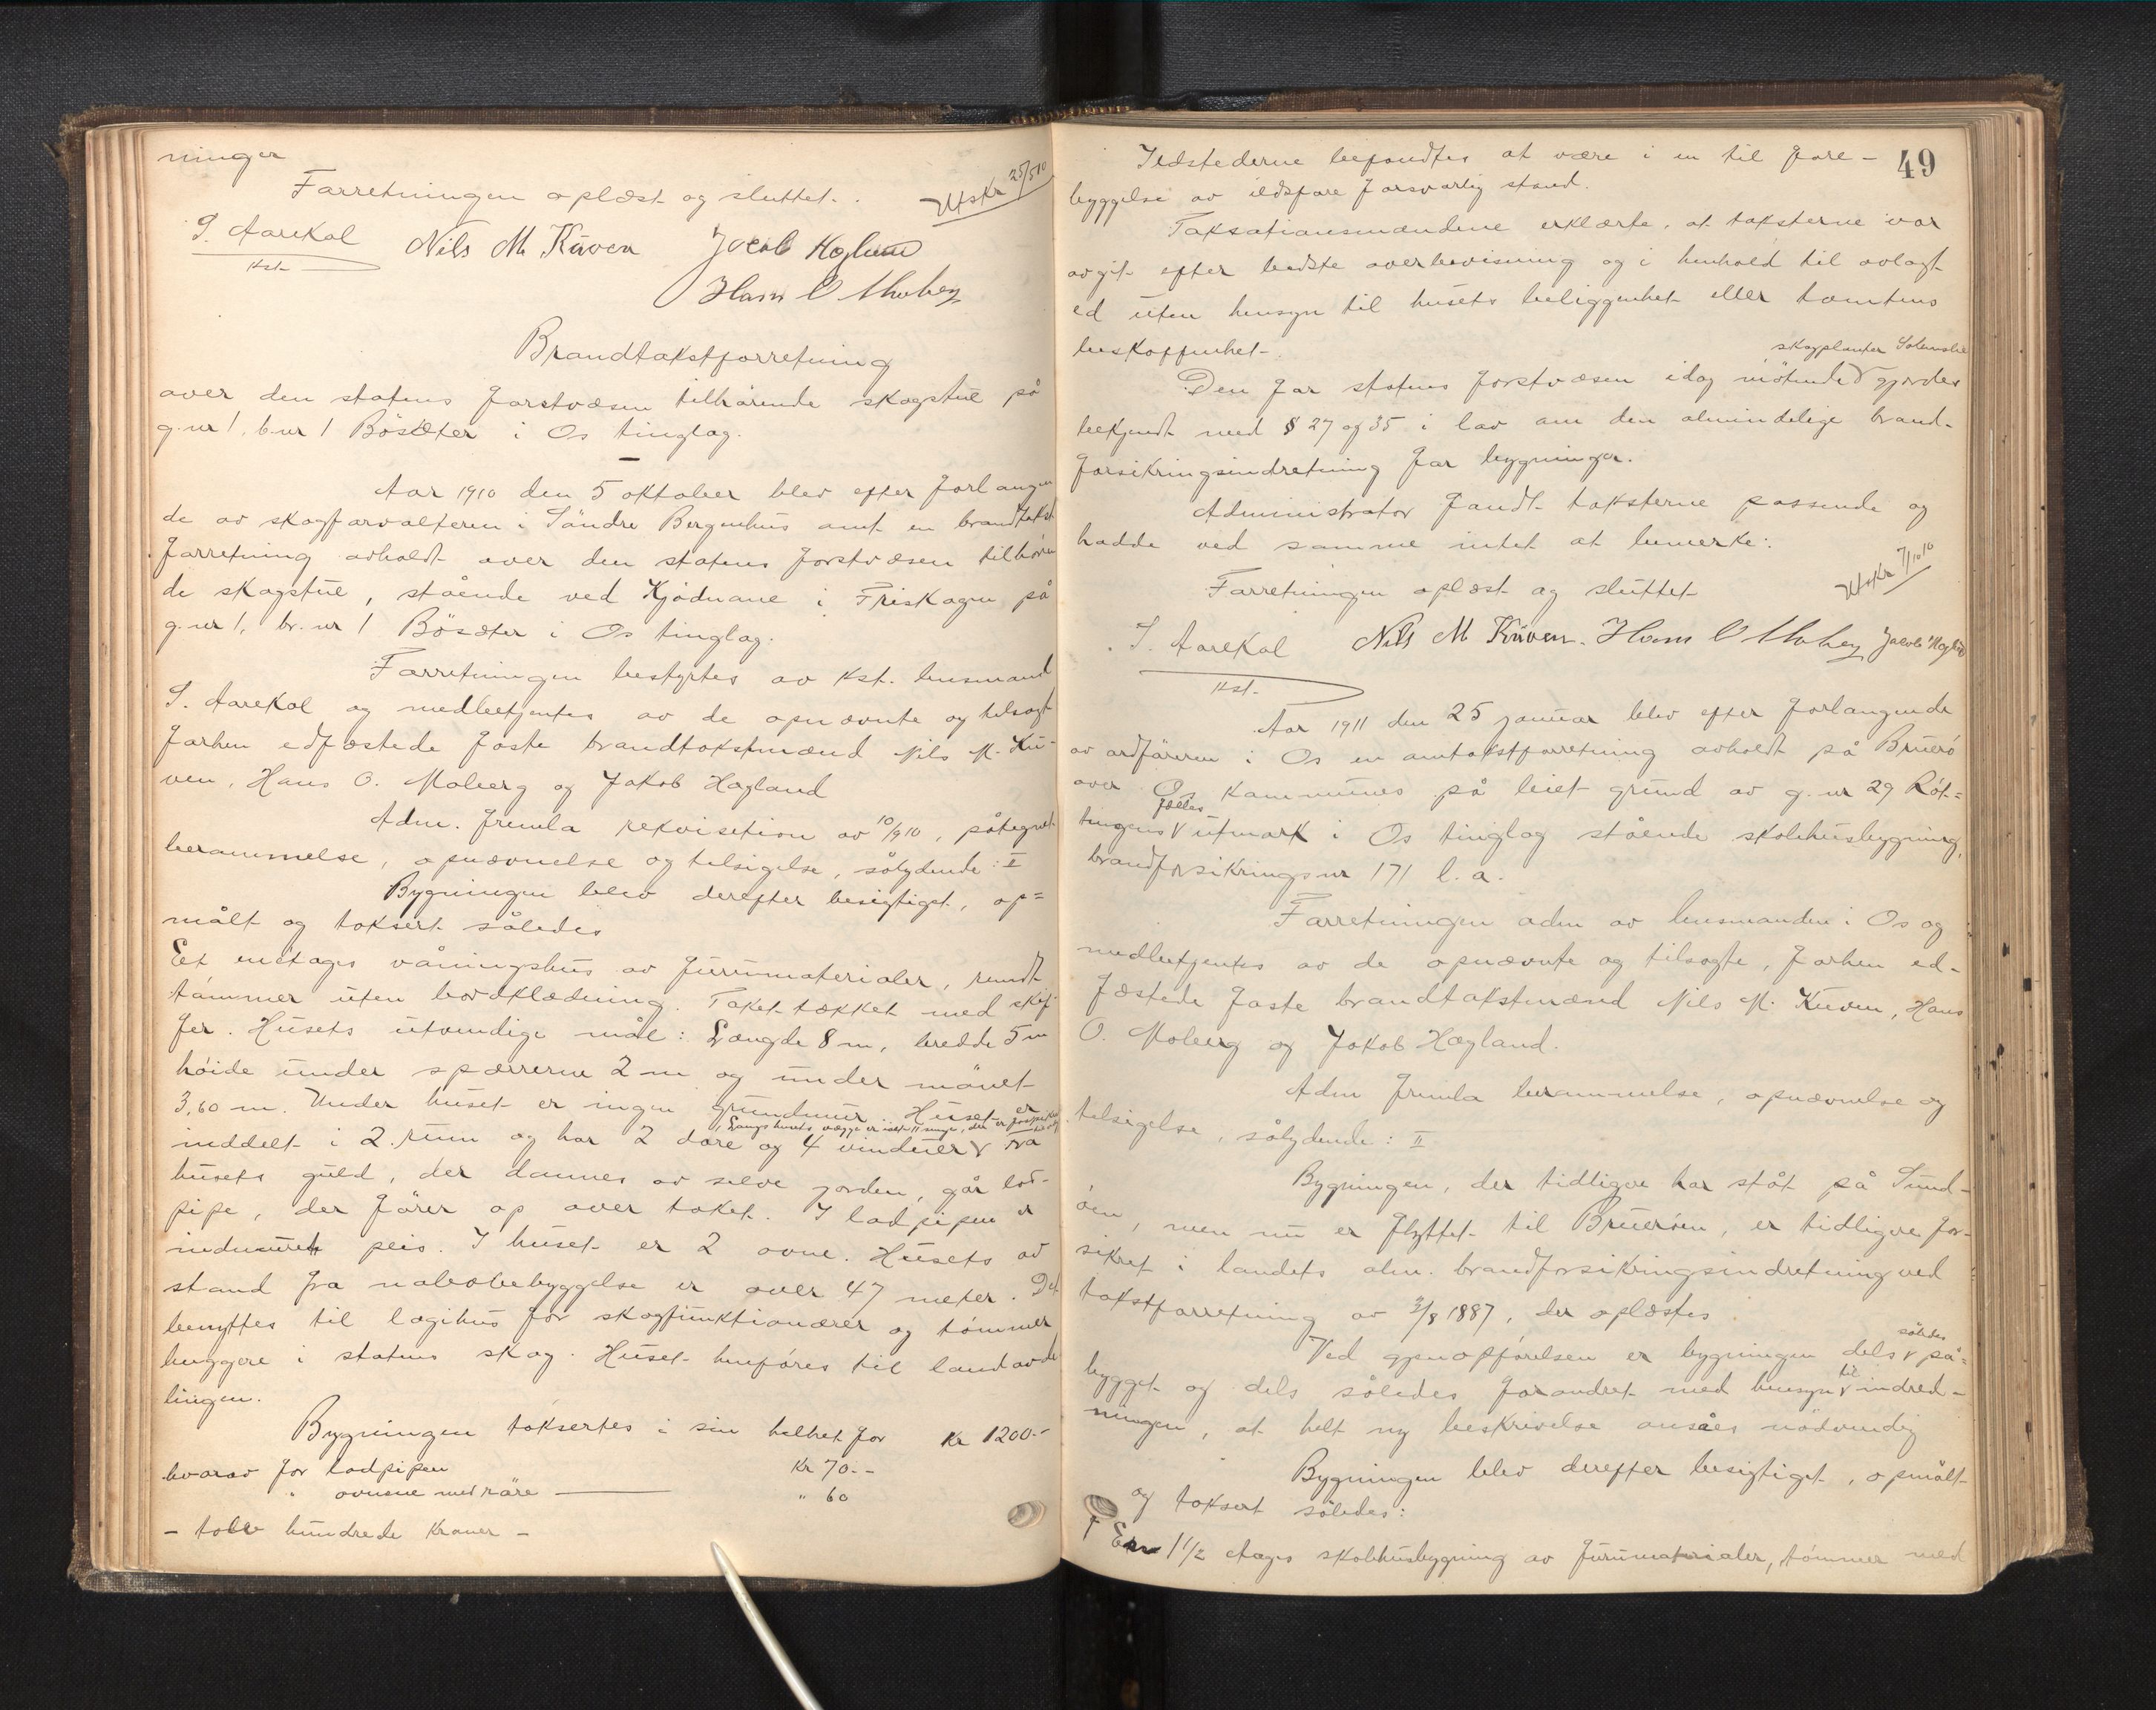 ninger
Farretningen oplæst og sluttet.
Utskr 25/5 10
S. Aarekol Nils M Kuven Jacob Hagland
kst.
Hans O Moberg
Brandtakstforretning
over den statens forstvæsen tilhørende skogstue på
g.nr 1, b.nr 1 Bøsæter i Os tinglag.
Aar 1910 den 5 oktober blev efter forlangen
de av skogforvalteren i Søndre Bergenhus amt en brandtakst
forretning avholdt over den statens forstvæsen tilhøren
de skogstue, stående ved Kjødnane i Friskogen på
g.nr 1, br.nr 1 Bøsæter i Os tinglag.
Forretningen bestyrtes av kst. lensmand
S. Aarekol og medbetjentes av de opnævnte og tilsagt
forhen edfæstede faste brandtakstmænd Nils M. Ku-
ven, Hans O. Moberg og Jakob Hagland
Adm. fremla rekvisition av 10/9 10, påtegnet
berammelse, opnævnelse og tilsigelse, sålydende: I
Bygningen blev derefter besigtiget, op=
målt og taksert således
Et enetages våningshus av furumaterialer, rundt
tømmer uten bordklædning. Taket tækket med skif
fer. Husets utvendige mål: Længde 8 m, bredde 5 m
høide under spærrerne 2 m og under mønet
3,60 m. Under huset er ingen grundmur. Huset er
Langs husets vægge er isat 11 senge, der er fastspikret
inddelt i 2 rum og har 2 døre og 4 vinduer v Fra
husets guld, der dannes av selve jorden, går lod-
pipe, der fører op over taket. I lodpipen er
indmuret peis. I huset er 2 ovne. Husets av
stand fra nabobebyggelse er over 47 meter. Det
benyttes til logihus for skogfunktionærer og tømmer
huggere i statens skog. Huset henføres til landavde
lingen.
Bygningen taksertes i sin helhet for kr 1200.-
hvorav for lodpipen kr 70.-
" ovnene med røre " 60
- tolv hundrede kroner -
49
Ildstederne befandtes at være i en til fore-
byggelse av ildsfare forsvarlig stand.
Taksationsmændene erklærte, at taksterne var
avgit efter bedste overbevisning og i henhold til avlagt
ed uten hensyn til husets beliggenhet eller tomtens
beskaffenhet.
skogplanter
Den for statens forstvæsen idag møtende v gjordes
bekjendt med § 27 og 35 i lov om den almindelige brand-
forsikringsindretning for bygninger.
Administrator fandt taksterne passende og
hadde ved samme intet at bemerke.
Utskr 7/10 10
Forretningen oplæst og sluttet
S. Aarekol Nils M Kuven. Hans O Moberg Jacob Hagland
kst.
Aar 1911 den 25 januar blev efter forlangende
av ordføreren i Os en omtakstforretning avholdt på Bruerø
over Os kommunes på leiet grund av g.nr 29 Røt=
fælles
tingens v utmark i Os tinglag stående skolehusbygning,
brandforsikringsnr 171 l. a.
Forretningen adm av lensmanden i Os og
medbetjentes av de opnævnte og tilsagte, forhen ed-
fæstede faste brandtakstmænd Nils M. Kuven, Hans
O. Moberg og Jakob Hagland.
Adm fremla berammelse, opnævnelse og
tilsigelse, sålydende: II
Bygningen, der tidligere har ståt på Sund-
øen, men nu er flyttet til Bruerøen, er tidligere for-
sikret i landets alm. brandforsikringsindretning ved
takstforretning av 3/8 1887, der oplæstes
således
Ved gjenopførelsen er bygningen dels v på=
til
bygget og dels således forandret med hensyn v indred-
ningen, at helt ny beskrivelse ansåes nødvendig
Bygningen blev derefter besigtiget, opmålt
og taksert således:
En 1 1/2 etages skolehusbygning av furumaterialer, tømmer med